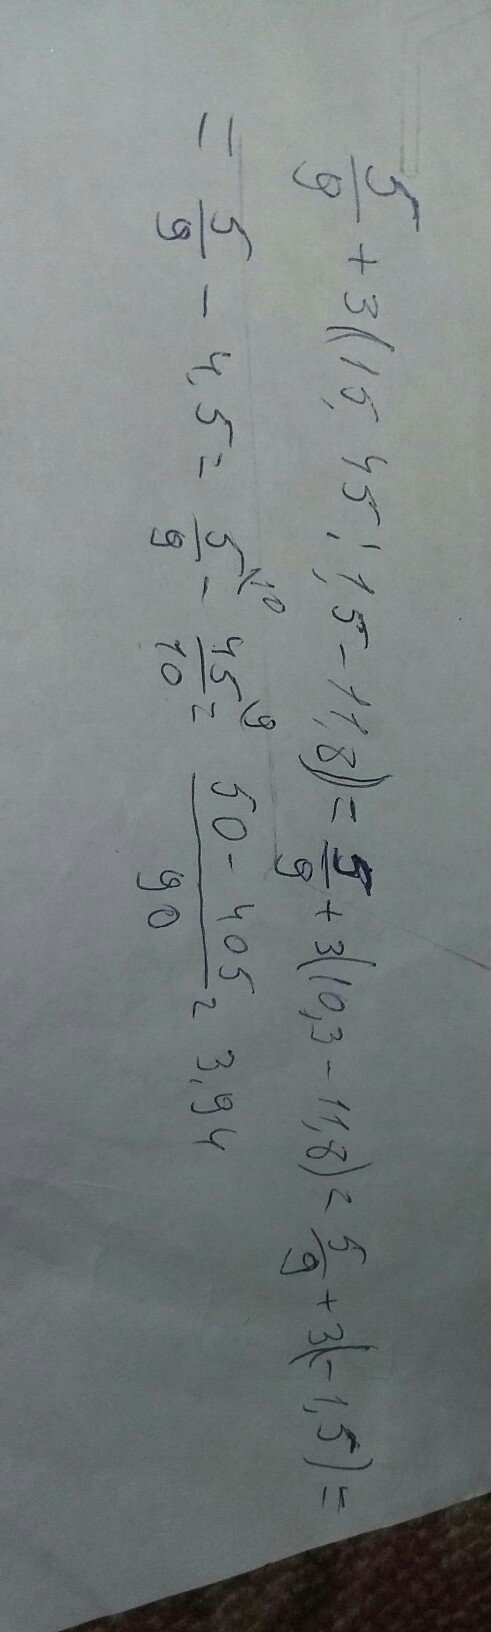 5/9 + 3(15,45:1,5-11,8) = 5/9 + 3(10,3-11,8) = 5/9 + 3(-1,5) =
= 5/9 - 4,5 = 5\10/9 - 45\9/10 = 50-405/90 = 3,94